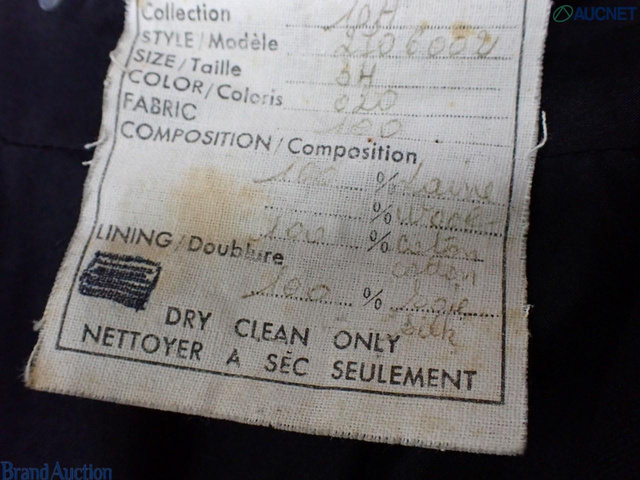 AUCNET
Collection
STYLE/Modèle 2706002
SIZE/Taille 34
COLOR/Coloris 020
FABRIC 100
COMPOSITION/Composition
100 % Laine
% wool
100 % coton
cotton
LINING/Doublure
100 % soie
silk
DRY CLEAN ONLY
NETTOYER A SÉC SEULEMENT
Brand Auction